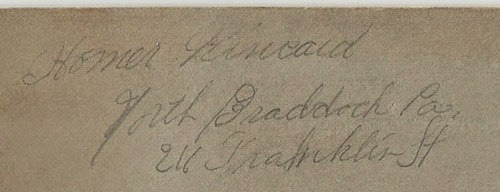 Homer Kincaid
North Braddock Pa.
211 Franklin St